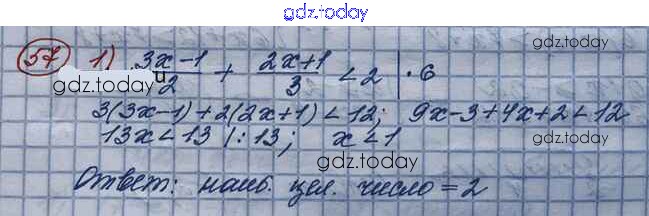 gdz.today
gdz.today
57 1) 3x-1/2 + 2x+1/3 < 2 | ·6
gdz.today
3(3x-1)+2(2x+1) < 12; 9x-3+4x+2 < 12
13x < 13 |:13; x < 1
gdz.today gdz.today
Ответ: наиб. цел. число = 2
gdz.today